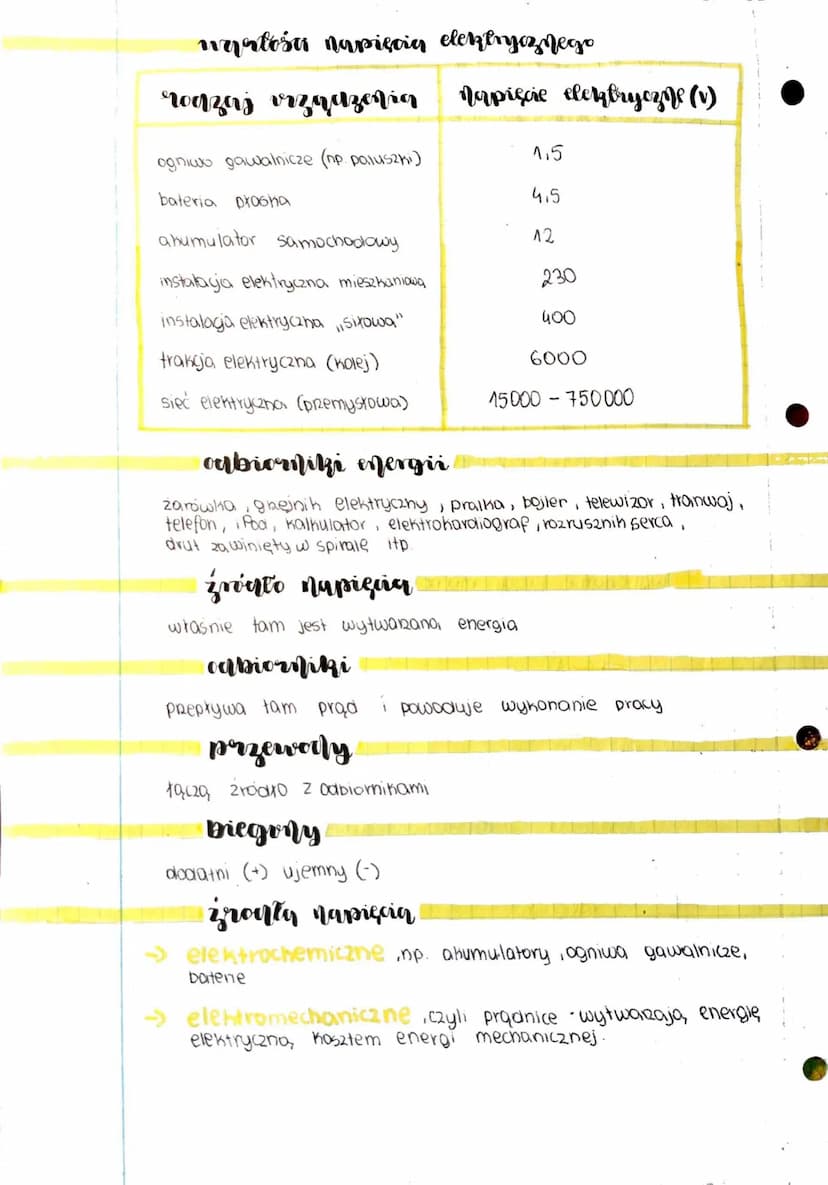 wartości napięcia elektrycznego
rodzaj urządzenia napięcie elektryczne (v)
ogniwo gawalnicze (np. paluszki) 1,5
bateria płaska 4,5
akumulator samochodowy 12
instalacja elektryczna mieszkaniowa 230
instalacja elektryczna „siłowa" 400
trakcja elektryczna (kolej) 6000
sieć elektryczna (przemysłowa) 15000 - 750000
odbiorniki energii
żarówka, grzejnik elektryczny, pralka, bojler, telewizor, tramwaj,
telefon, iPod, kalkulator, elektrokardiograf, rozrusznik serca,
drut zawinięty w spiralę itp.
źródło napięcia
właśnie tam jest wytwarzana energia
odbiorniki
przepływa tam prąd i powoduje wykonanie pracy
przewody
łączą źródło z odbiornikami
bieguny
dodatni (+) ujemny (-)
źródła napięcia
→ elektrochemiczne, np. akumulatory, ogniwa gawalnicze,
baterie
→ elektromechaniczne, czyli prądnice - wytwarzają energię
elektryczną kosztem energi mechanicznej.